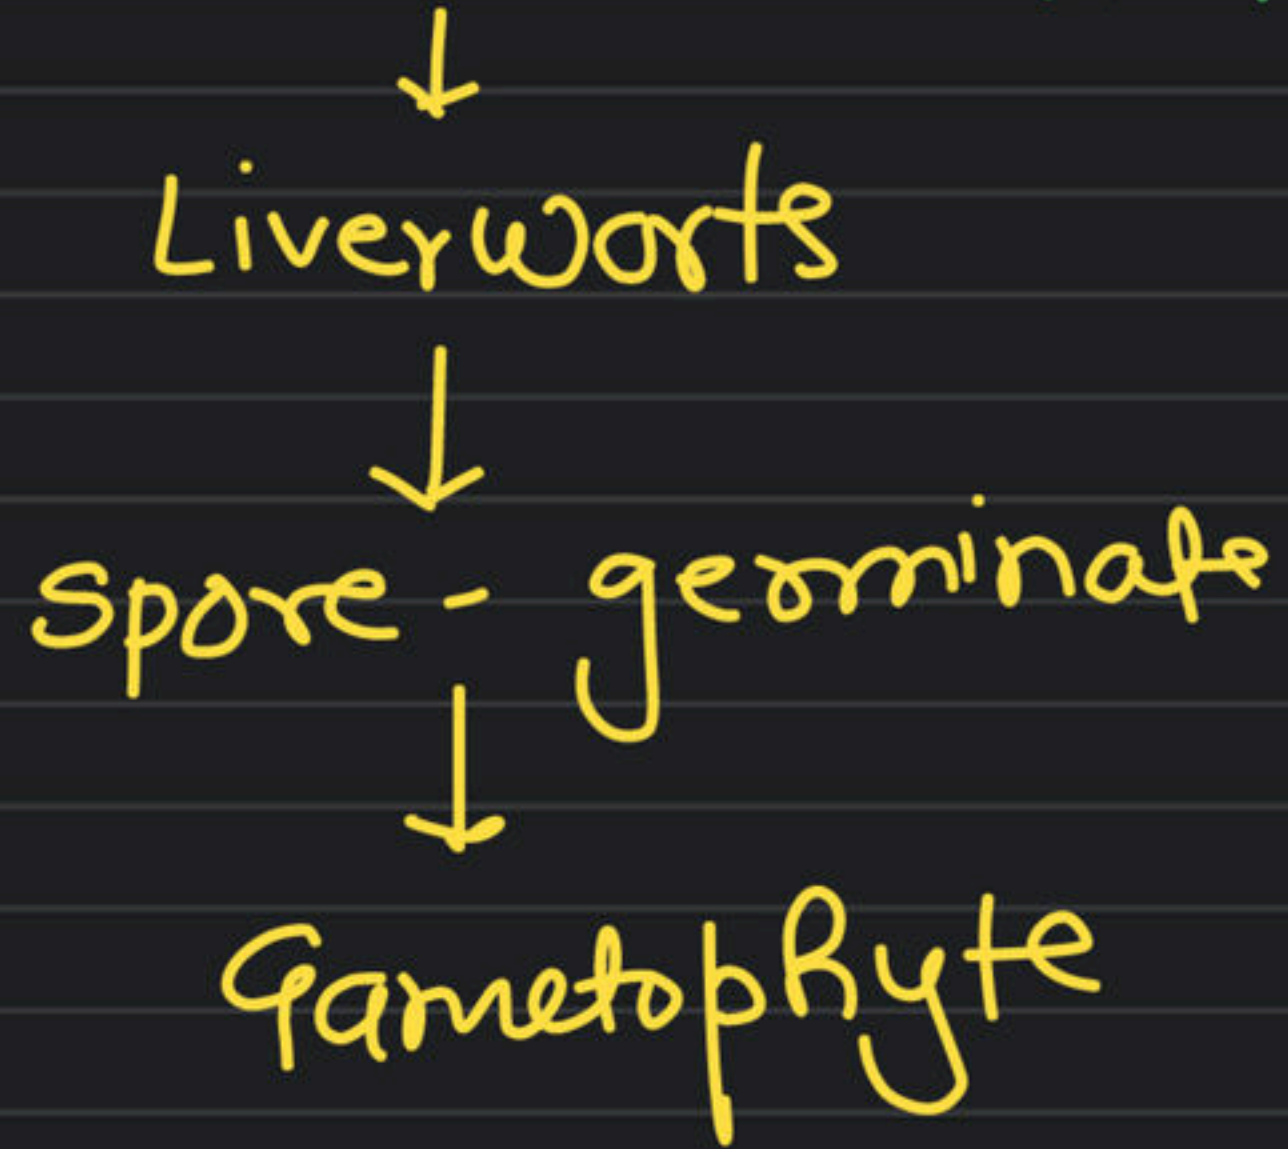 Liverworts
Spore - germinate
Gametophyte